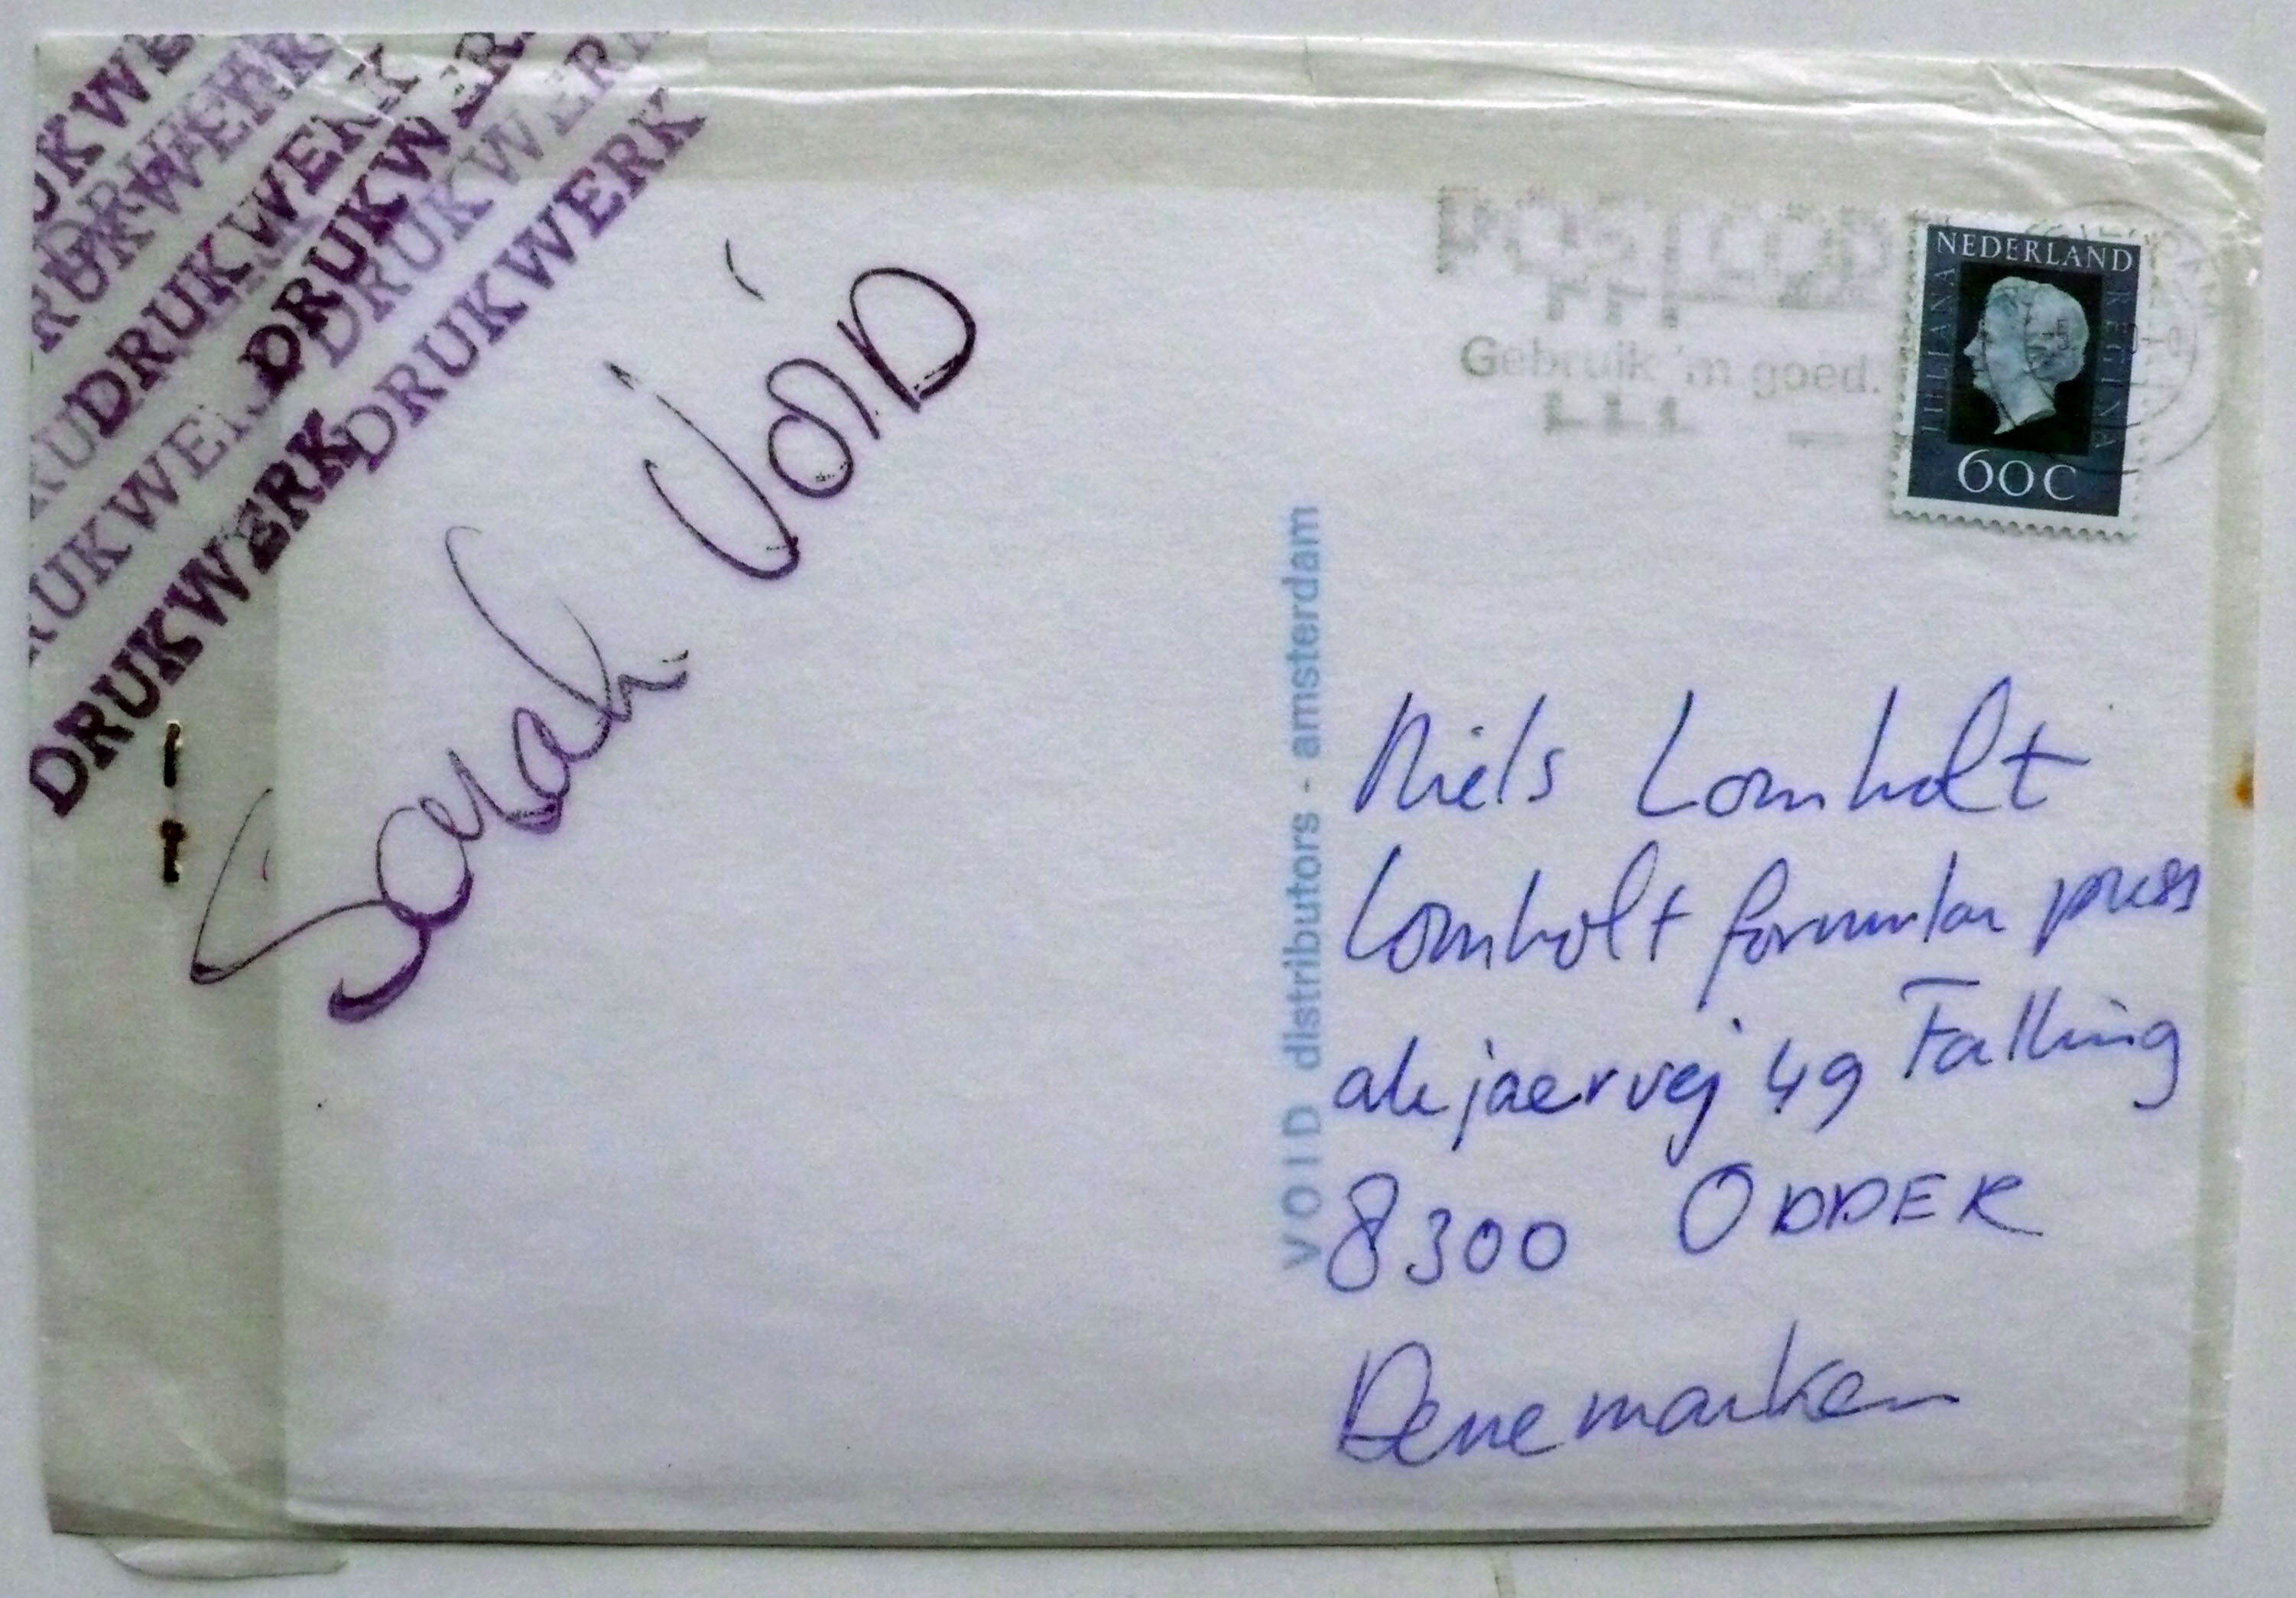 DRUKWERK
DRUKWERK
DRUKWERK
DRUKWERK
DRUKWERK
DRUKWERK
Sarah VOID
VOID distributors - amsterdam
POSTCODE
Gebruik 'm goed.
NEDERLAND
JULIANA REGINA
60C
Niels Lomholt
Lomholt formular press
akjaervej 49 Falling
8300 ODDER
Denemarken